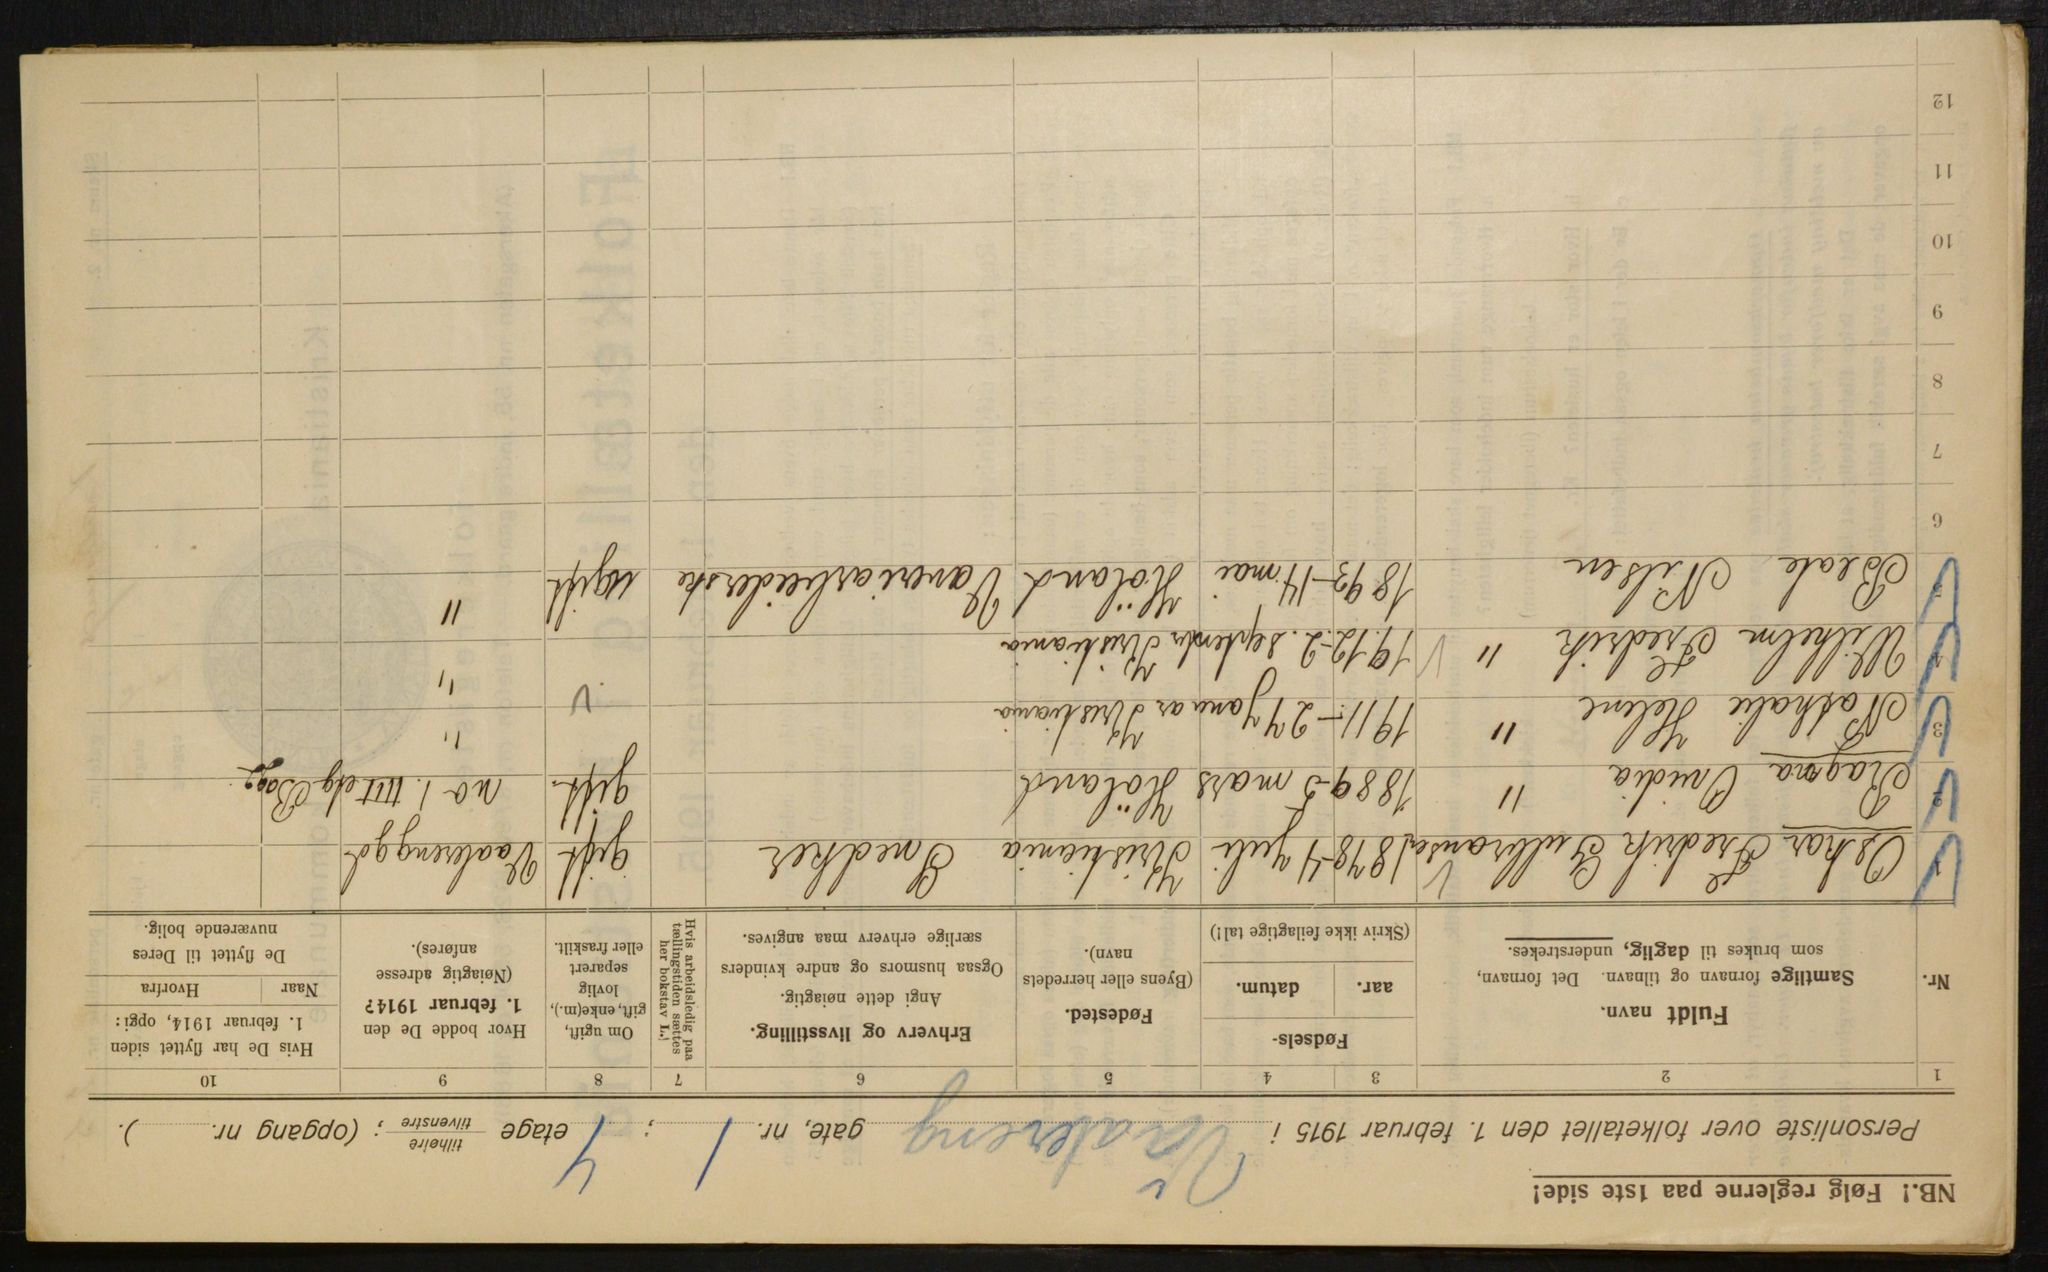 NB.! Følg reglerne paa 1ste side!
Personliste over folketallet den 1. februar 1915 i Vaalereng gate, nr. 1 ; 4 etage tilhøire tilvenstre ; (opgang nr. ).
1 2 3 4 5 6 7 8 9 10
Nr.
Fuldt navn.
Samtlige fornavn og tilnavn. Det fornavn,
som brukes til daglig, understrekes.
Fødsels-
aar. datum.
(Skriv ikke feilagtige tal!)
Fødested.
(Byens eller herredets
navn).
Erhverv og livsstilling.
Angi dette nøiagtig.
Ogsaa husmors og andre kvinders
særlige erhverv maa angives.
Hvis arbeidsledig paa
tællingstiden sættes
her bokstav L.!
Om ugift,
gift, enke(m.),
lovlig
separert
eller fraskilt.
Hvor bodde De den
1. februar 1914?
(Nøiagtig adresse
anføres).
Hvis De har flyttet siden
1. februar 1914, opgi:
Naar Hvorfra
De flyttet til Deres
nuværende bolig.
1 Oskar Fredrik Gulbransen 1878 - 4 juli Kristiania Snedker gift Vaalerenggd
2 Ragna Ovidia " 1889 - 5 mars Høland gift no 1. IIII etg
3 Nathalie Helene " 1911 - 27 januar Kristiania "
4 Wilhelm Fredrik " 1912 - 2. september Kristiania "
5 Beate Nilsen 1893 - 14 mai Høland Væveriarbeiderske ugift "
6
7
8
9
10
11
12